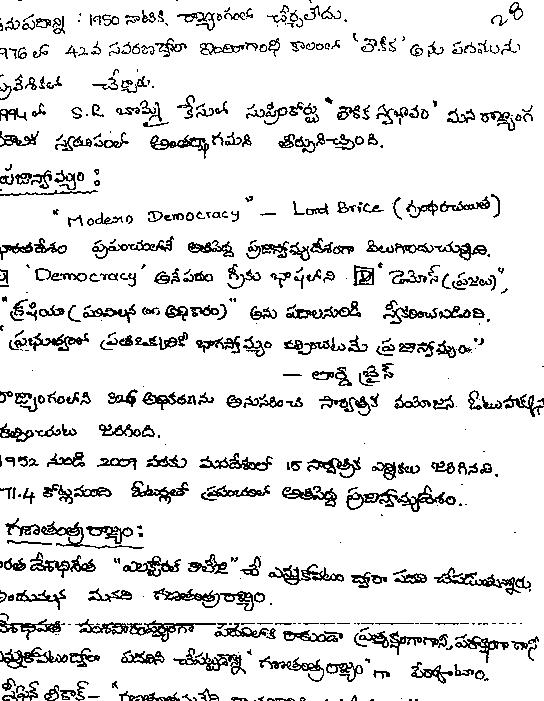 28
: 1950 నాటికి, రాజ్యాంగంలో చేర్చలేదు.
1976 లో 42వ సవరణ ద్వారా ఇందిరాగాంధీ కాలంలో 'లౌకిక' అను పదమును
ప్రవేశికలో చేర్చారు.
1994 లో S.R. బొమ్మై కేసులో సుప్రీంకోర్టు "లౌకిక స్వభావం" మన రాజ్యాంగ
మౌలిక స్వరూపంలో అంతర్భాగమని తీర్పునిచ్చింది.
ప్రజాస్వామ్యం :
"Modern Democracy" – Lord Brice (గ్రంథరచయిత)
భారతదేశం ప్రపంచంలోనే అతిపెద్ద ప్రజాస్వామ్యదేశంగా పిలువబడుచున్నది.
'Democracy' అనేపదం గ్రీకు భాషలోని డెమోస్ (ప్రజలు)",
"క్రేషియా (పరిపాలన లేదా అధికారం)" అను పదాలనుండి స్వీకరించబడింది.
"ప్రభుత్వంలో ప్రతిఒక్కరికి భాగస్వామ్యం కల్పించటమే ప్రజాస్వామ్యం."
– లార్డ్ బ్రైస్
రాజ్యాంగంలోని 326 అధికరణను అనుసరించి సార్వత్రిక వయోజన ఓటుహక్కును
కల్పించుట జరిగింది.
1952 నుండి 2009 వరకు మనదేశంలో 15 సార్వత్రిక ఎన్నికలు జరిగినవి.
71.4 కోట్లమంది ఓటర్లతో ప్రపంచంలో అతిపెద్ద ప్రజాస్వామ్యదేశం.
గణతంత్ర రాజ్యం :
భారత దేశాధినేత "ఎలక్టోరల్ కాలేజి" చే ఎన్నికోబడటం ద్వారా పదవి చేపడుతున్నారు.
అందువలన మనది గణతంత్రరాజ్యం.
దేశాధిపతి వంశపారంపర్యంగా పదవిలోకి రాకుండా ప్రత్యక్షంగాగాని, పరోక్షంగా గాని
ఎన్నికోబడటం ద్వారా పదవిని చేపట్టడాన్ని "గణతంత్రరాజ్యం" గా పేర్కొంటారు.